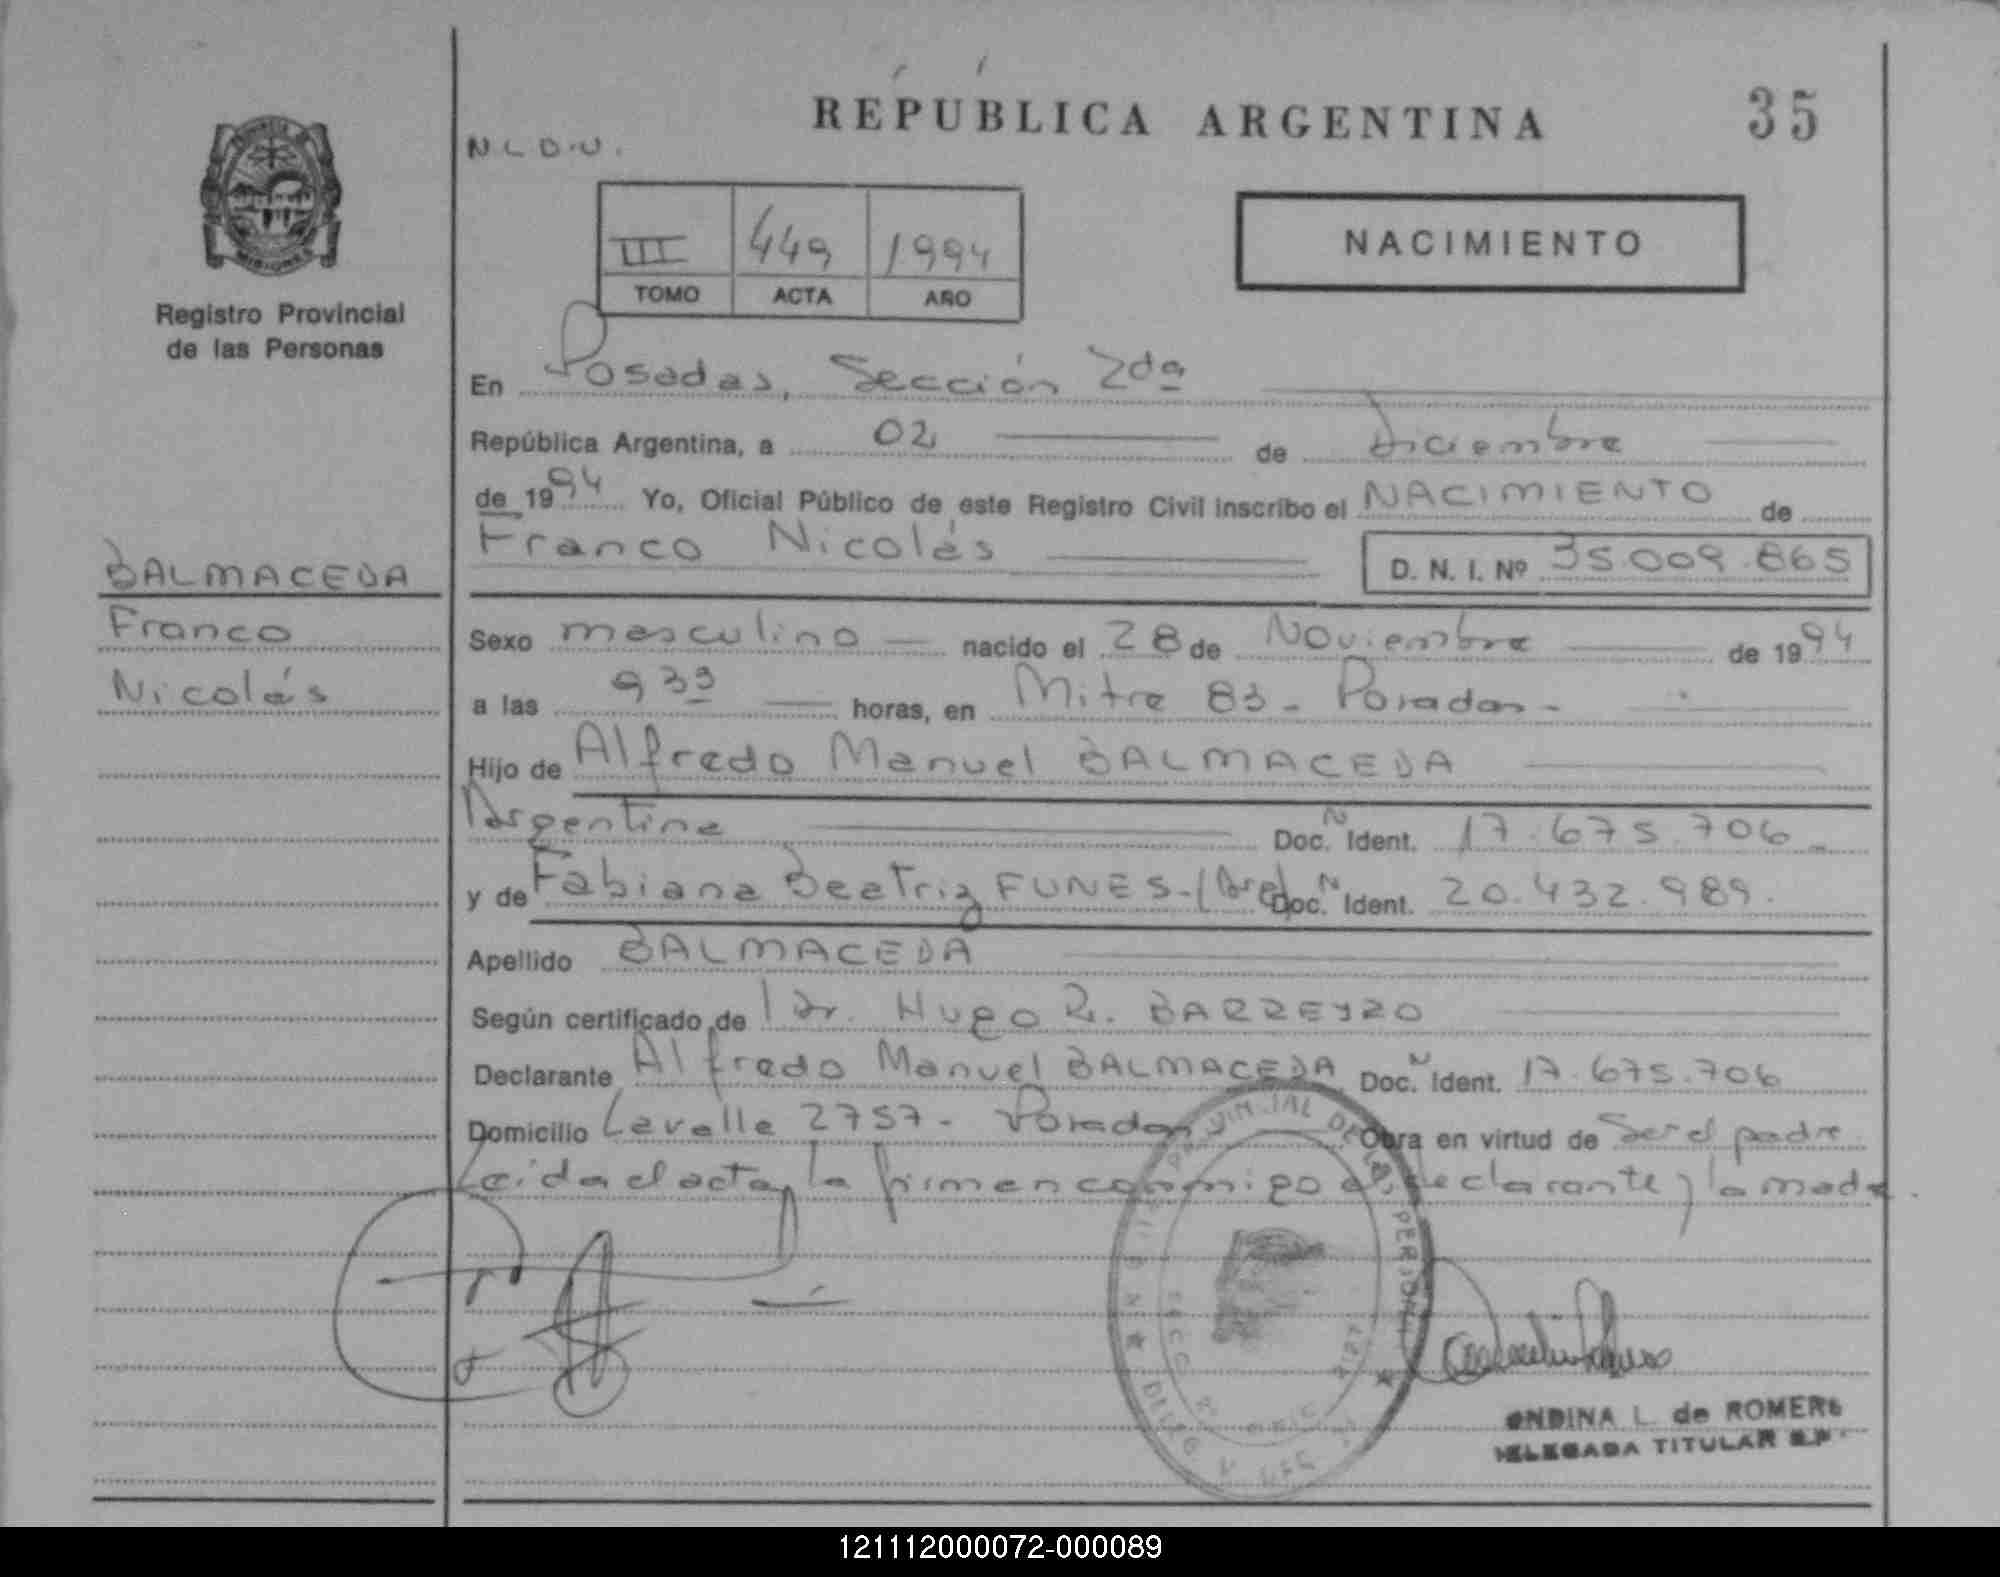 REPÚBLICA ARGENTINA
35
N L D. U.
NACIMIENTO
III 449 1994
TOMO ACTA AÑO
MISIONES
Registro Provincial
de las Personas
En Posadas, Sección 2da
República Argentina, a 02 de Diciembre
de 1994 Yo, Oficial Público de este Registro Civil inscribo el NACIMIENTO de
Franco Nicolás
D. N. I. Nº 35.009.865
BALMACEDA
Franco
Nicolás
Sexo masculino nacido el 28 de Noviembre de 1994
a las 9 33 horas, en Mitre 83 - Posadas -
Hijo de Alfredo Manuel BALMACEDA
Argentina Doc. N Ident. 17.675.706
y de Fabiana Beatriz FUNES - (Arg) Doc. N Ident. 20.432.989.
Apellido BALMACEDA
Según certificado de Dr. Hugo R. BARREYRO
Declarante Alfredo Manuel BALMACEDA Doc. N Ident. 17.675.706
Domicilio Lavalle 2757 - Posadas Obra en virtud de Ser el padre
Leida el acta, la firman conmigo el declarante y la madre.
ONDINA L. de ROMERO
DELEGADA TITULAR
121112000072-000089